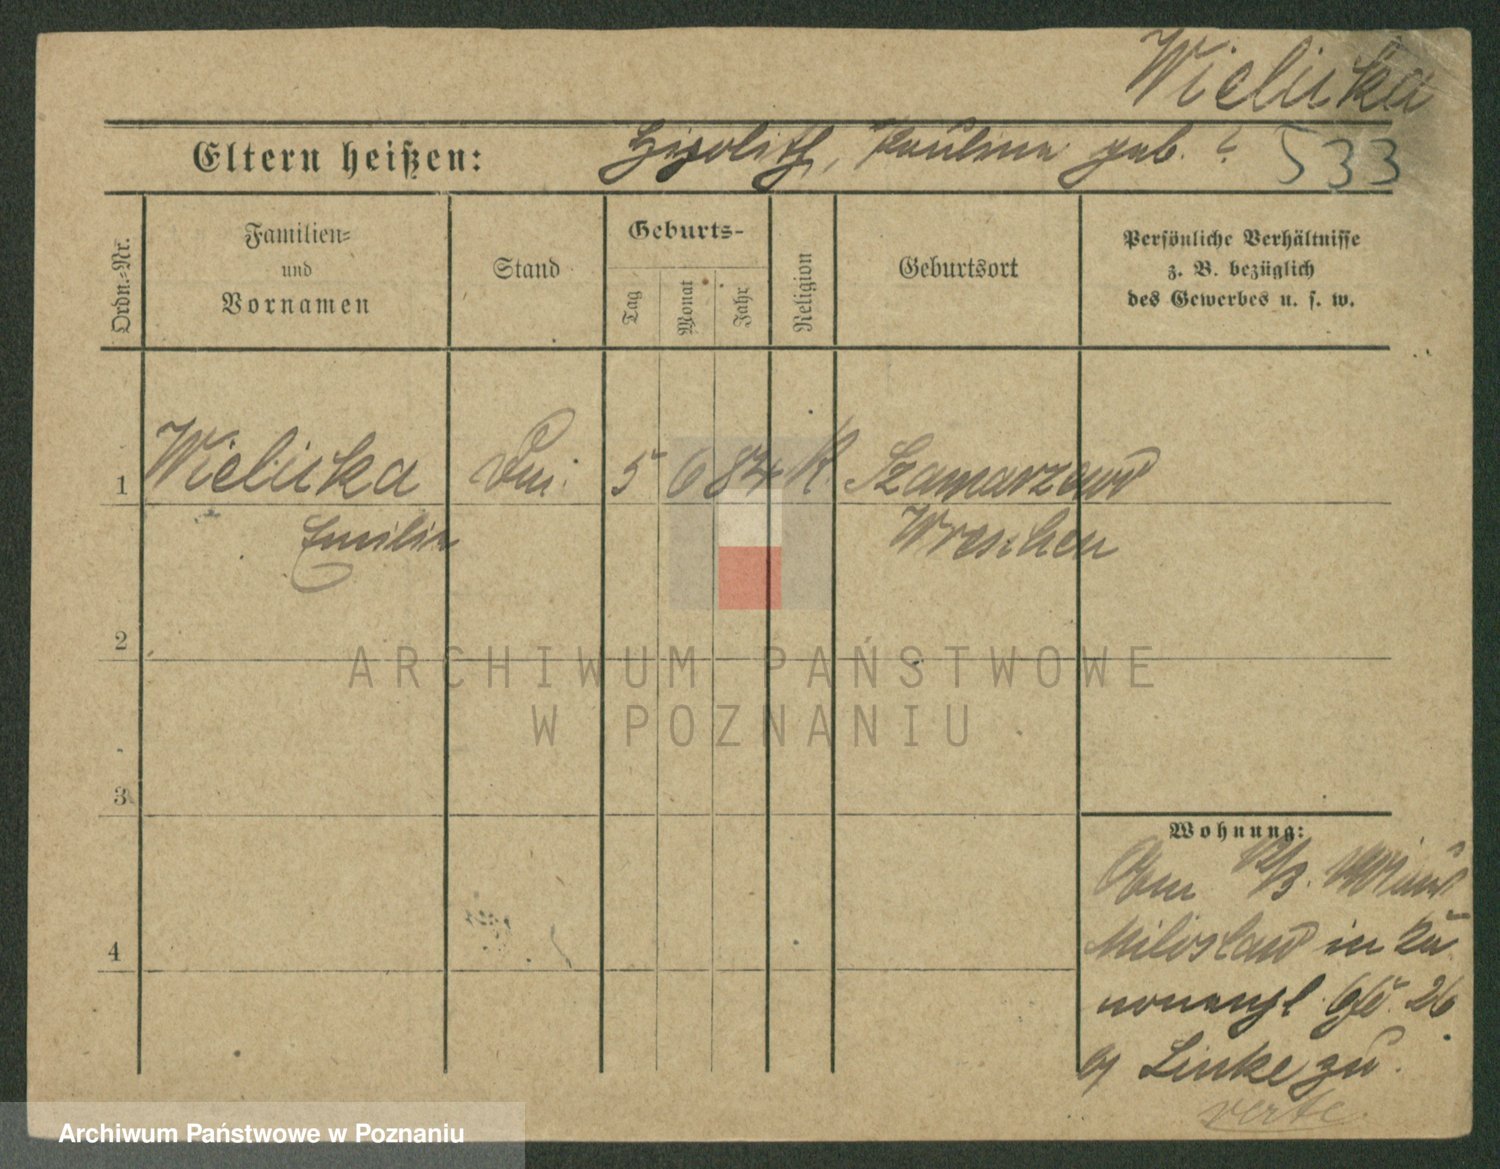 Wielicka
Eltern heißen: Hipolith, Paulina geb. ?
533
Ordn.-Nr.
Familien-
und
Vornamen
Stand
Geburts-
Tag
Monat
Jahr
Religion
Geburtsort
Persönliche Verhältnisse
z. B. bezüglich
des Gewerbes u. s. w.
1 Wielicka 5 6 84 K. Szamarzewo
Emilie Wreschen
2
ARCHIWUM PAŃSTWOWE
W POZNANIU
3
Wohnung:
4
Miloslaw in
26
Linke zu.
verte
Archiwum Państwowe w Poznaniu